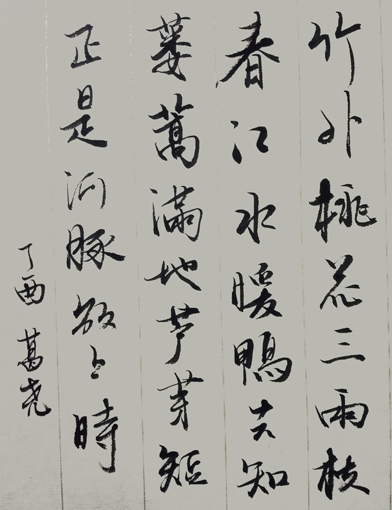 竹外桃花三兩枝
春江水暖鴨先知
蒌蒿滿地芦芽短
正是河豚欲上時
丁酉 葛尧